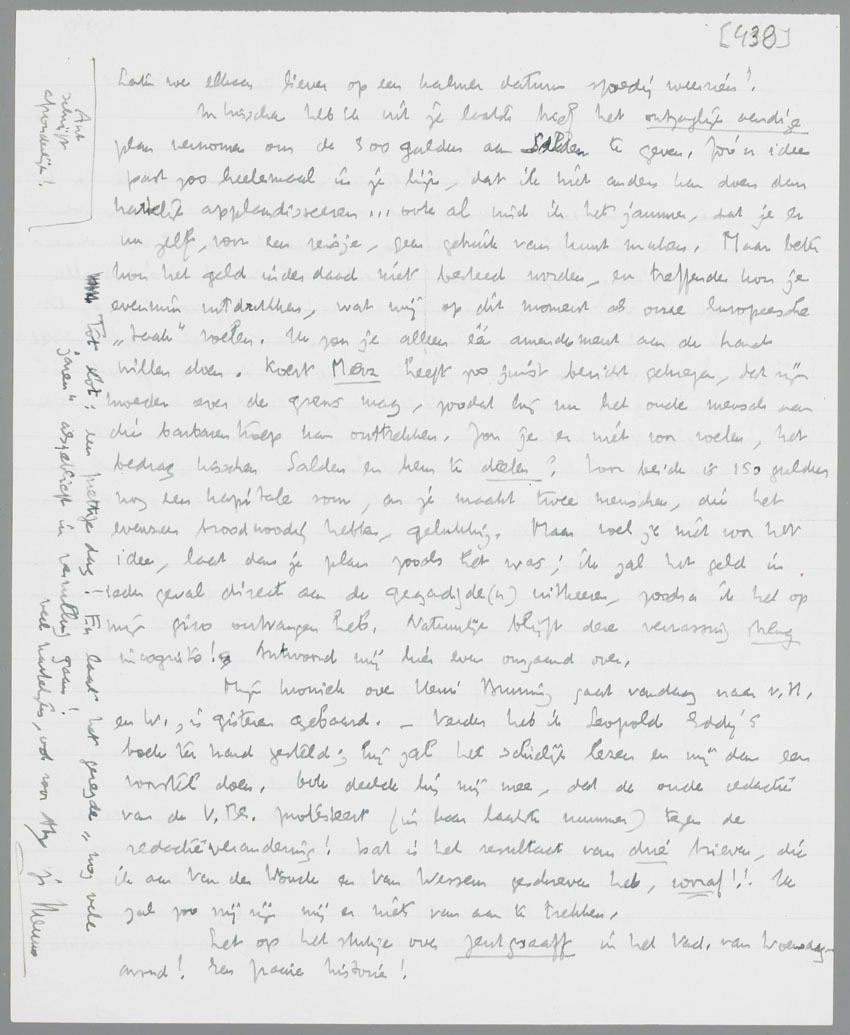 [438]
Laten we elkaar liever op een kalmer datum spoedig weerzien!
Intusschen heb ik uit je laatste brief het ontzaglijk aardige
plan vernomen om de 300 gulden aan Salden te geven. Zoo'n idee
past zoo heelemaal in je lijn, dat ik niet anders kan doen dan
hartelijk applaudisseeren... ook al vind ik het jammer, dat je er
nu zelf, voor een reisje, geen gebruik van kunt maken. Maar beter
kon het geld inderdaad niet besteed worden, en treffender kon je
evenmin uitdrukken, wat wij op dit moment als onze Europeesche
„taak" voelen. Ik zou je alleen één amendement aan de hand
willen doen. Koert Merz heeft zoo juist bericht gekregen, dat zijn
moeder over de grens mag, zoodat hij nu het oude mensch aan
die barbarentroep kan onttrekken. Zou je er niet voor voelen, het
bedrag tusschen Salden en hem te deelen? Voor beide is 150 gulden
nog een kapitale som, en je maakt twee menschen, die het
evenzeer broodnoodig hebben, gelukkig. Maar voel je niet voor het
idee, laat dan je plan zooals het was; ik zal het geld in
ieder geval direct aan de gegadigde(n) uitkeeren, zoodra ik het op
mijn giro ontvangen heb. Natuurlijk blijft deze verrassing streng
incognito! Antwoord mij hier even omgaand over.
Mijn kroniek over Henri Bruning gaat vandaag naar v.H.
en W., is gisteren gebaard. – Verder heb ik Leopold Eddy's
boek ter hand gesteld; hij zal het schielijk lezen en mij dan een
voorstel doen. Ook deelde hij mij mee, dat de oude redactie
van de V.Bl. protesteert (in haar laatste nummer) tegen de
redactieverandering! Dat is het resultaat van drie brieven, die
ik aan Van der Woude en Van Wessem geschreven heb, vooraf!! Ik
zal zoo vrij zijn mij er niets van aan te trekken.
Let op het stukje over Zentgraaff in het Vad. van Woensdag-
avond! Een fraaie historie!
Tot slot: een prettige dag! En laat het gezegde „nog vele
jaren" alsjeblieft in vervulling gaan!
veel hartelijks, ook voor Atie je Menno
Ant
schrijft
afzonderlijk!